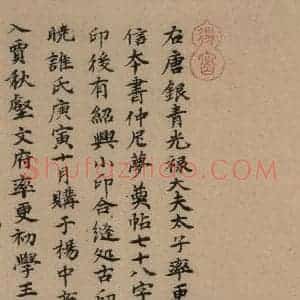 右唐銀青光禄大夫太子率更
信本書仲尼夢奠帖七十八字
印後有紹興小印合縫処古印
曉誰氏庚寅十月購于楊中
入賈秋壑文府率更初學王